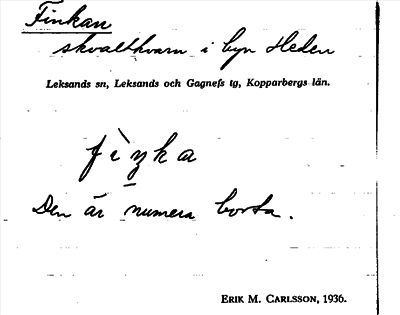 Finkan
skvaltkvarn i byn Heden
Leksands sn, Leksands och Gagnefs tg, Kopparbergs län.
Den är numera borta.
ERIK M. CARLSSON, 1936.